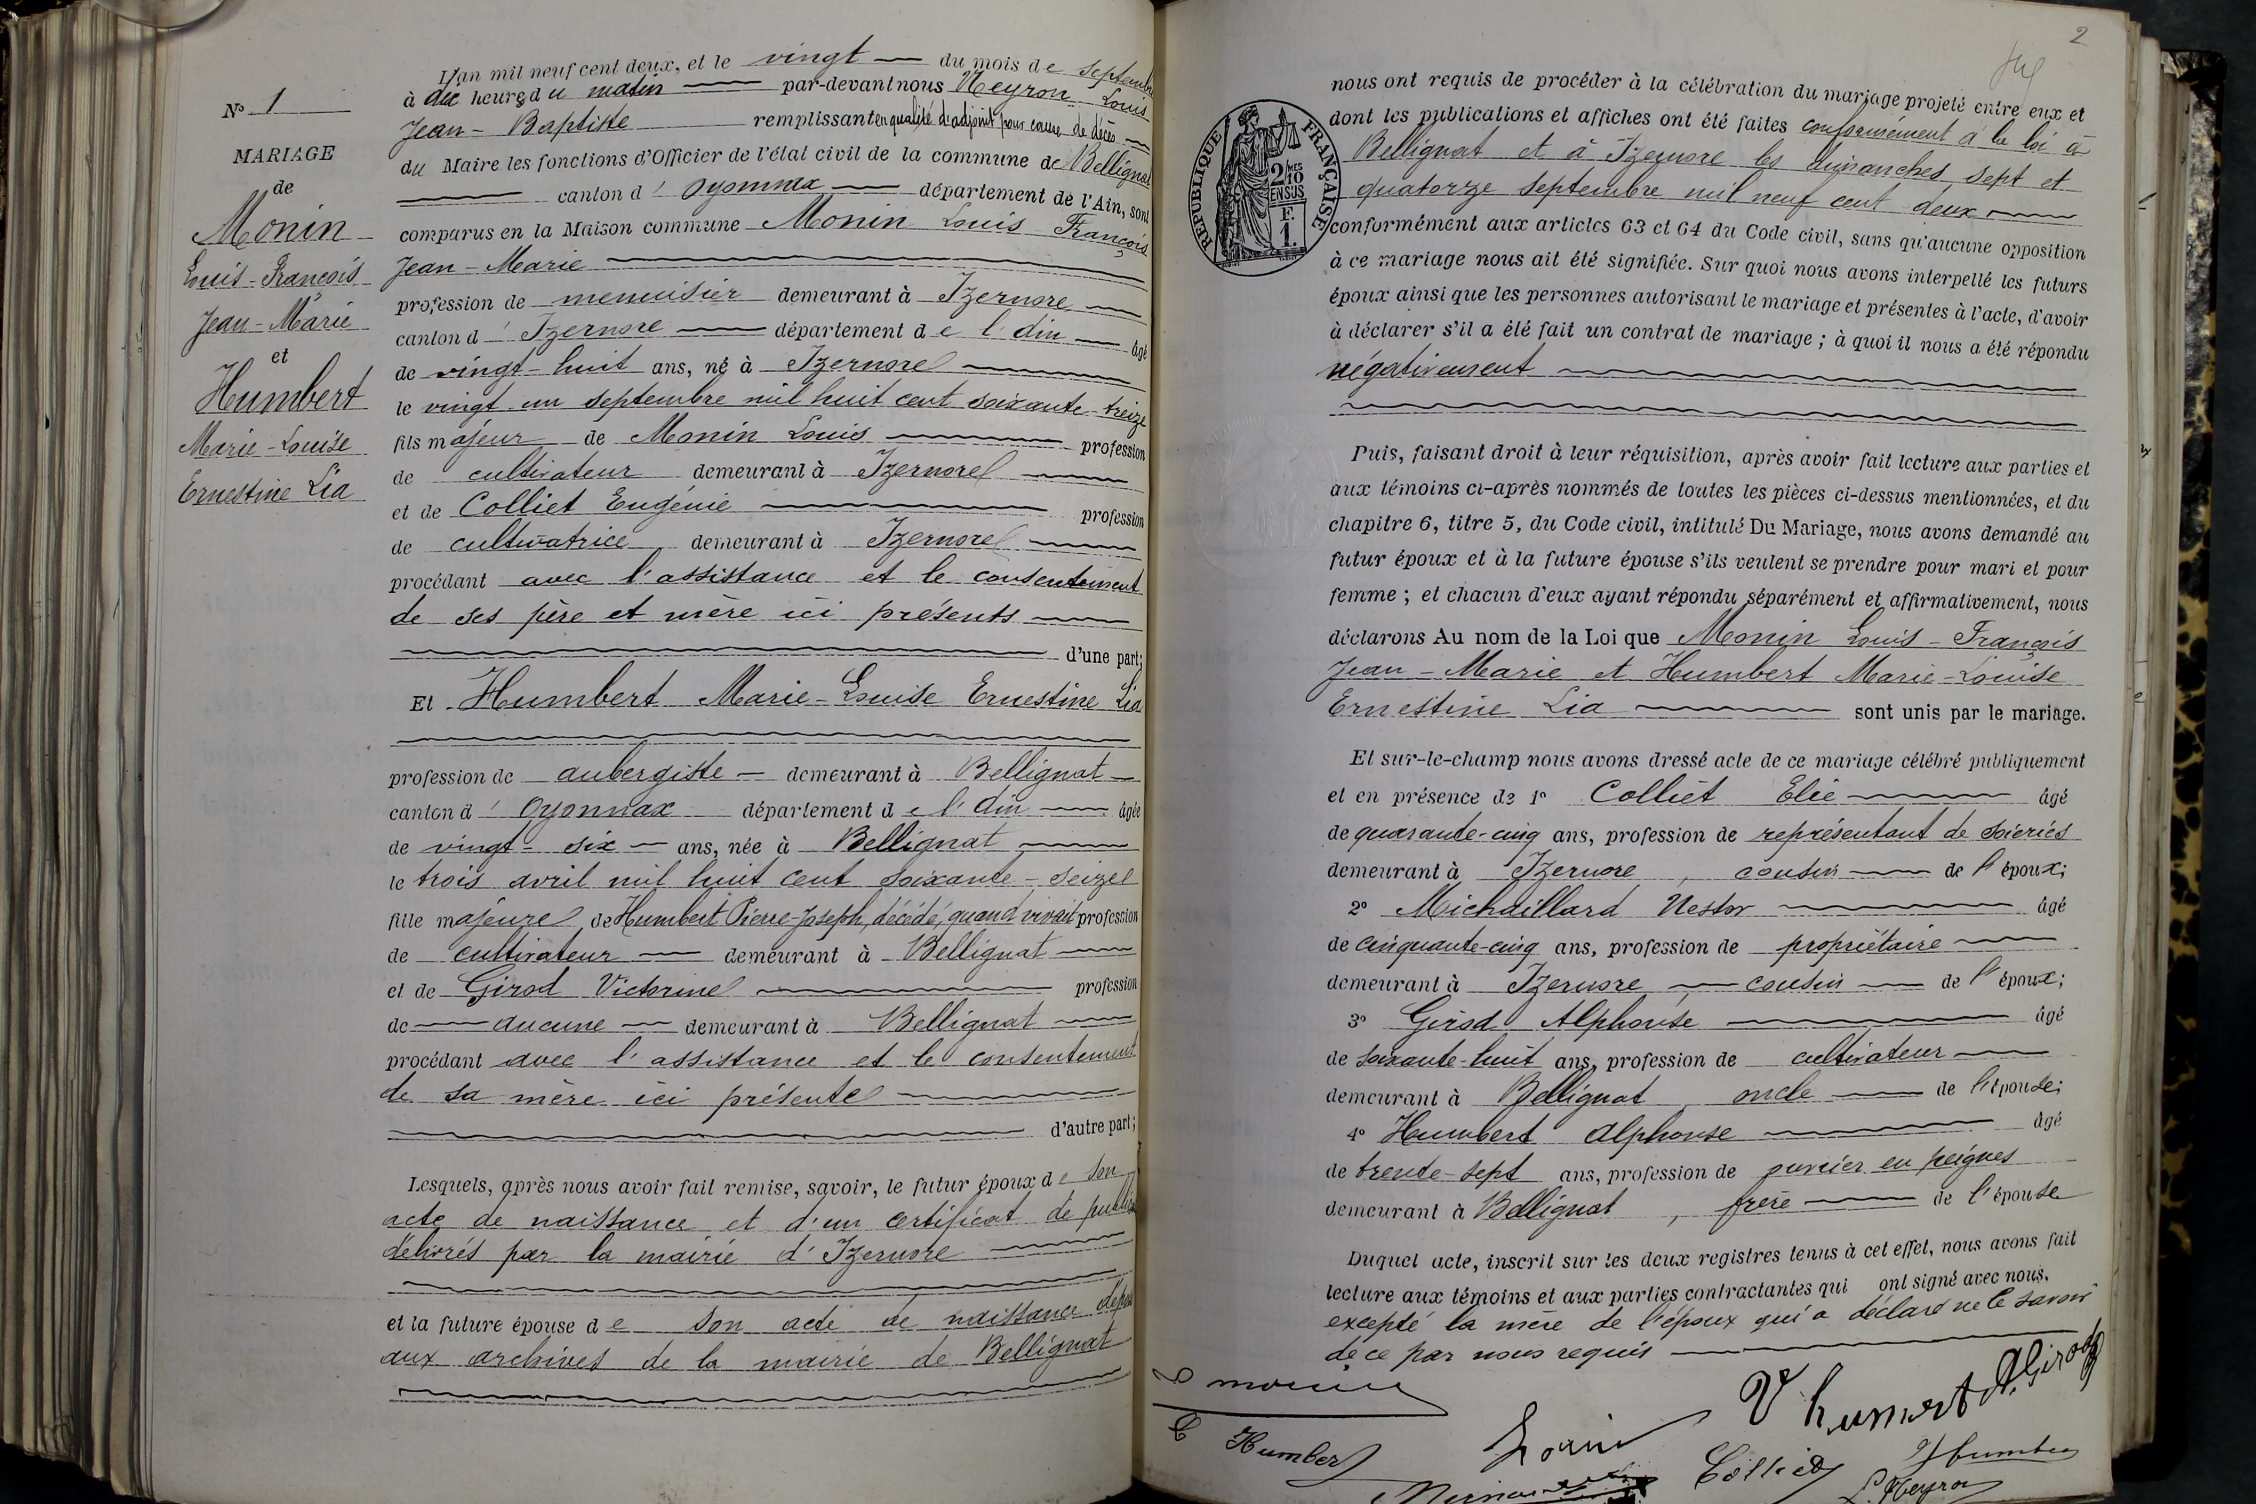 N° 1
MARIAGE
de
Monin
Louis-François
Jean-Marie
et
Humbert
Marie-Louise
Ernestine Lia
L'an mil neuf cent deux, et le vingt du mois de septembre
à dix heures du matin par-devant nous Neyron Louis
Jean-Baptiste remplissant en qualité d'adjoint pour cause de décès
du Maire les fonctions d'Officier de l'état civil de la commune de Bellignat
canton d'Oyonnax département de l'Ain, sont
comparus en la Maison commune Monin Louis François
Jean-Marie
profession de menuisier demeurant à Izernore
canton d'Izernore département de l'Ain âgé
de vingt-huit ans, né à Izernore
le vingt-un septembre mil huit cent soixante-treize
fils majeur de Monin Louis profession
de cultivateur demeurant à Izernore
et de Colliet Eugénie profession
de cultivatrice demeurant à Izernore
procédant avec l'assistance et le consentement
de ses père et mère ici présents
d'une part;
Et Humbert Marie-Louise Ernestine Lia
profession de aubergiste demeurant à Bellignat
canton d'Oyonnax département de l'Ain âgée
de vingt-six ans, née à Bellignat
le trois avril mil huit cent soixante-seize
fille majeure de Humbert Pierre-Joseph, décédé, quand vivait profession
de cultivateur demeurant à Bellignat
et de Girod Victorine profession
de aucune demeurant à Bellignat
procédant avec l'assistance et le consentement
de sa mère ici présente
d'autre part;
Lesquels, après nous avoir fait remise, savoir, le futur époux de son
acte de naissance et d'un certificat de
délivrés par la mairie d'Izernore
et la future épouse de son acte de naissance
aux archives de la mairie de Bellignat
2
nous ont requis de procéder à la célébration du mariage projeté entre eux et
dont les publications et affiches ont été faites conformément à la loi à
Bellignat et à Izernore les dimanches sept et
quatorze septembre mil neuf cent deux
conformément aux articles 63 et 64 du Code civil, sans qu'aucune opposition
à ce mariage nous ait été signifiée. Sur quoi nous avons interpellé les futurs
époux ainsi que les personnes autorisant le mariage et présentes à l'acte, d'avoir
à déclarer s'il a été fait un contrat de mariage ; à quoi il nous a été répondu
négativement
RÉPUBLIQUE FRANÇAISE
2/10 MES
EN SUS
F.
1.
Puis, faisant droit à leur réquisition, après avoir fait lecture aux parties et
aux témoins ci-après nommés de toutes les pièces ci-dessus mentionnées, et du
chapitre 6, titre 5, du Code civil, intitulé Du Mariage, nous avons demandé au
futur époux et à la future épouse s'ils veulent se prendre pour mari et pour
femme ; et chacun d'eux ayant répondu séparément et affirmativement, nous
déclarons Au nom de la Loi que Monin Louis-François
Jean-Marie et Humbert Marie-Louise
Ernestine Lia sont unis par le mariage.
Et sur-le-champ nous avons dressé acte de ce mariage célébré publiquement
et en présence de 1° Colliet Elie âgé
de quarante-cinq ans, profession de représentant de soieries
demeurant à Izernore, cousin de l'époux;
2° Michaillard Nestor âgé
de cinquante-cinq ans, profession de propriétaire
demeurant à Izernore, cousin de l'époux;
3° Girod Alphonse âgé
de soixante-huit ans, profession de cultivateur
demeurant à Bellignat, oncle de l'épouse;
4° Humbert Alphonse âgé
de trente-sept ans, profession de ouvrier en peignes
demeurant à Bellignat, frère de l'épouse
Duquel acte, inscrit sur les deux registres tenus à cet effet, nous avons fait
lecture aux témoins et aux parties contractantes qui ont signé avec nous,
excepté la mère de l'époux qui a déclaré ne le savoir
de ce par nous requis
L Monin
L Humbert
V humbert A Girod
Monin
Colliet
A humbert
L. Neyron